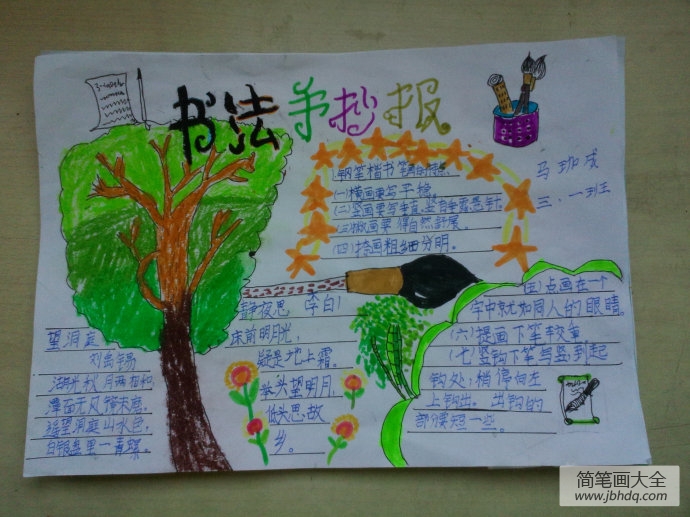 书法手抄报
马珈成
三.一班
钢笔楷书笔画的特点
(一)横画要写平稳。
(二)竖画要写垂直,竖有垂露悬针。
(三)撇画要 得自然舒展
(四)捺画粗细分明。
(五)点画在一个
字中就如同人的眼睛。
(六)提画下笔较重
(七)竖钩下笔写竖,到起
钩处,稍停向左
上钩出。出钩的
部分要短一些。
静夜思 李白
床前明月光,
疑是地上霜。
举头望明月,
低头思故
乡。
望洞庭
刘禹锡
湖光秋月两相和,
潭面无风镜未磨。
遥望洞庭山水色,
白银盘里一青螺。
简笔画大全
www.jbhdq.com